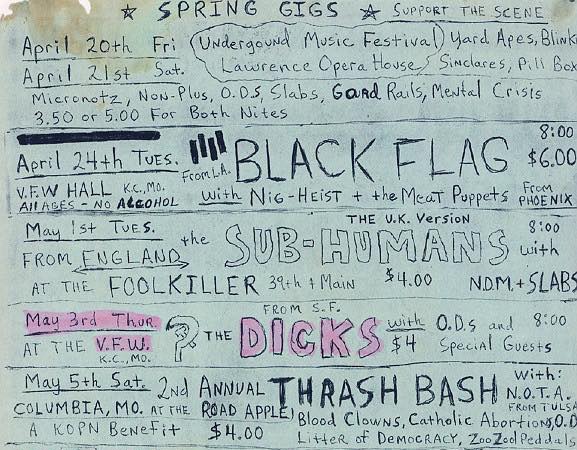 ☆ SPRING GIGS ☆ SUPPORT THE SCENE
April 20th Fri (Undergound Music Festival) Yard Apes, Blink
April 21st Sat. Lawrence Opera House Sinclares, Pill Box
Micronotz, Non-Plus, O.D.S, Slabs, Gaard Rails, Mental Crisis
3.50 or 5.00 For Both Nites
April 24th TUES. From L.A. BLACK FLAG 8:00 $6.00
V.F.W HALL K.C., MO. with NIG-HEIST + the MEAT PUPPETS From PHOENIX
All AGES - NO ALCOHOL
May 1st TUES. the SUB-HUMANS THE U.K. VERSION 8:00
FROM ENGLAND with
AT THE FOOLKILLER 39th + Main $4.00 N.D.M. + SLABS
May 3rd Thur. ? THE DICKS FROM S.F. with O.D.s and 8:00
AT THE V.F.W. K.C., MO. $4 Special Guests
May 5th Sat. 2nd ANNUAL THRASH BASH with:
COLUMBIA, MO. AT THE ROAD APPLE N.O.T.A. FROM TULSA
A KOPN Benefit $4.00 Blood Clowns, Catholic Abortions, O.D
Litter of DEMOCRACY, ZooZool Peddals